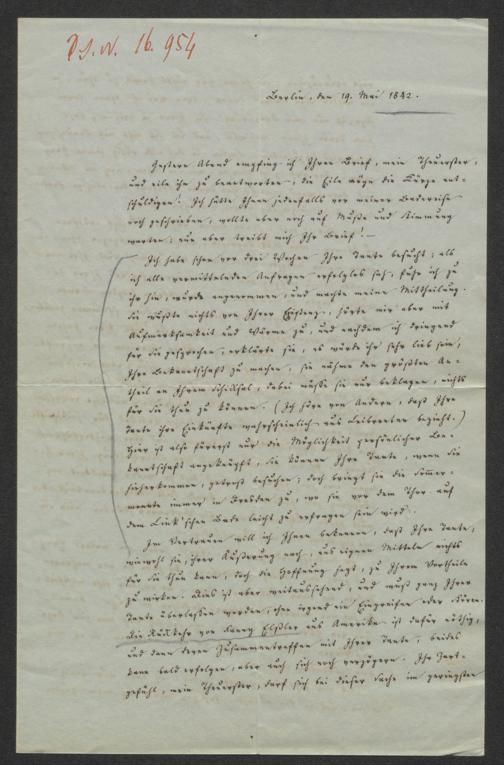 I.N. 16.954
Berlin, den 19. Mai 1842.
Gestern Abend empfing ich Ihren Brief, mein Theuerster,
und eile ihn zu beantworten; die Eile möge die Kürze ent-
schuldigen! Ich hätte Ihnen jedenfalls vor meiner Badereise
noch geschrieben, wollte aber noch auf Muße und Stimmung
warten; nun aber treibt mich Ihr Brief! —
Ich habe schon vor drei Wochen Ihre Tante besucht; als
ich alle vermittelnden Anfragen erfolglos sah, fuhr ich zu
ihr hin, wurde angenommen, und machte meine Mittheilung.
Sie wußte nichts von Ihrer Existenz, hörte mir aber mit
Aufmerksamkeit und Wärme zu, und nachdem ich dringend
für Sie gesprochen, erklärte sie, es würde ihr sehr lieb sein,
Ihre Bekanntschaft zu machen, sie nähme den größten An-
theil an Ihrem Schicksal, dabei müsse sie nur beklagen, nichts
für Sie thun zu können. (Ich höre von Andern, daß Ihre
Tante ihre Einkünfte wahrscheinlich aus Leibrenten bezieht.)
Hier ist also fürerst nur die Möglichkeit persönlicher Be-
kanntschaft angeknüpft, Sie können Ihre Tante, wenn Sie
hieherkommen, getrost besuchen; doch bringt sie die Sommer-
monate immer in Dresden zu, wo sie vor dem Thor auf
dem Link'schen Bade leicht zu erfragen sein wird.
Im Vertrauen will ich Ihnen bekennen, daß Ihre Tante,
wiewohl sie, ihrer Äußerung nach, aus eignen Mitteln nichts
für Sie thun kann, doch die Hoffnung hegt, zu Ihrem Vortheile
zu wirken. Dies ist aber weitaussehend, und muß ganz Ihrer
Tante überlassen werden, ohne irgend ein Eingreifen oder Stören.
Die Rückkehr von Fanny Elßler aus Amerika ist dafür nöthig,
und dann deren Zusammentreffen mit Ihrer Tante; beides
kann bald erfolgen, aber auch sich noch verzögern. Ihr Zart-
gefühl, mein Theuerster, darf sich bei dieser Sache im geringsten